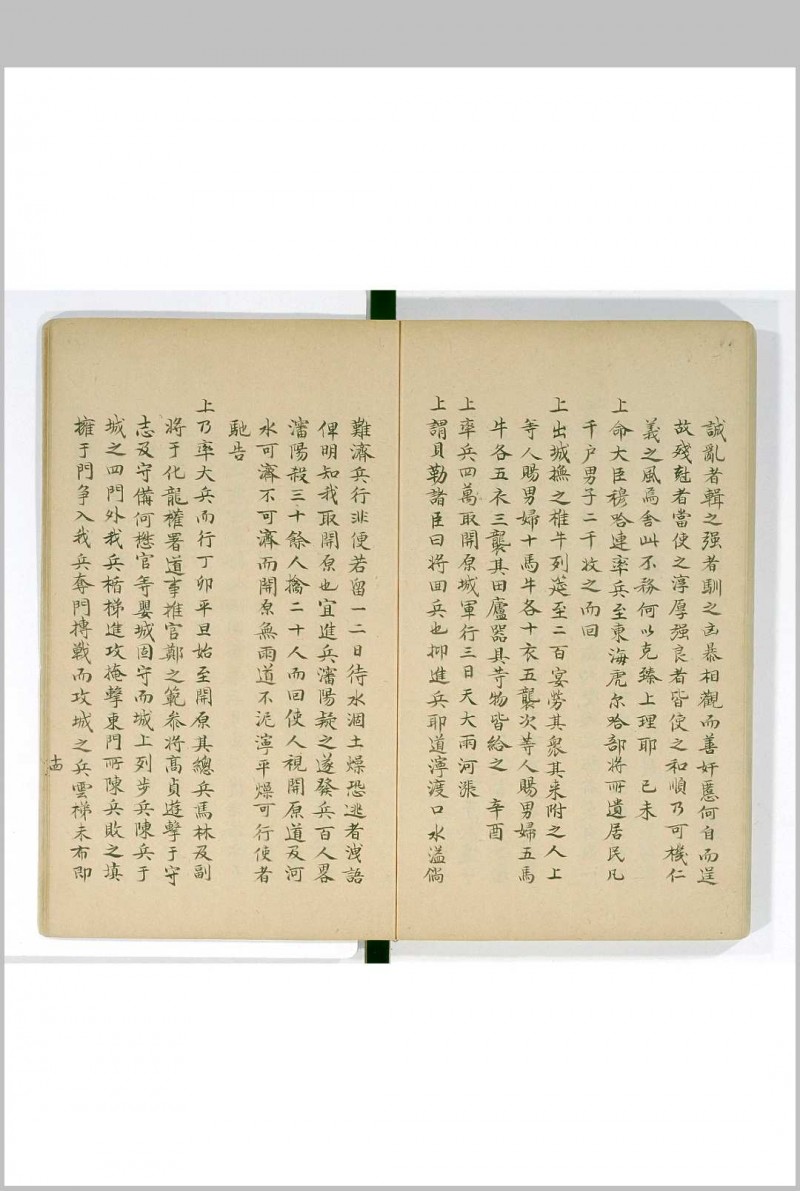 誠亂者輯之强者馴之凶暴相觀而善奸慝何自而逞
故殘尩者當使之淳厚强良者皆使之和順乃可機仁
義之風焉舍此不務何以克臻上理耶　己未
上命大臣穆哈連率兵至東海虎尔哈部將所遺居民凡
千户男子二千收之而回
上出城撫之椎牛列筵至二百宴勞其衆其来附之人上
等人賜男婦十馬牛各十衣五襲次等人賜男婦五馬
牛各五衣三襲其田廬器具等物皆給之　辛酉
上率兵四萬取開原城軍行三日天大雨河漲
上謂貝勒諸臣曰將回兵也抑進兵耶道濘渡口水溢倘
難濟兵行非便若留一二日待水涸土燥恐逃者洩語
俾明知我取開原也宜進兵瀋陽疑之遂發兵百人畧
瀋陽殺三十餘人擒二十人而回使人視開原道及河
水可濟不可濟而開原無雨道不泥濘平燥可行使者
馳告
上乃率大兵而行丁卯平旦始至開原其總兵馬林及副
將于化龍權署道事推官鄭之範叅將髙貞遊擊于守
志及守備何懋官等嬰城固守而城上列步兵陳兵于
城之四門外我兵楯梯進攻掩擊東門所陳兵敗之填
擁于門争入我兵奪門摶戰而攻城之兵雲梯未布即